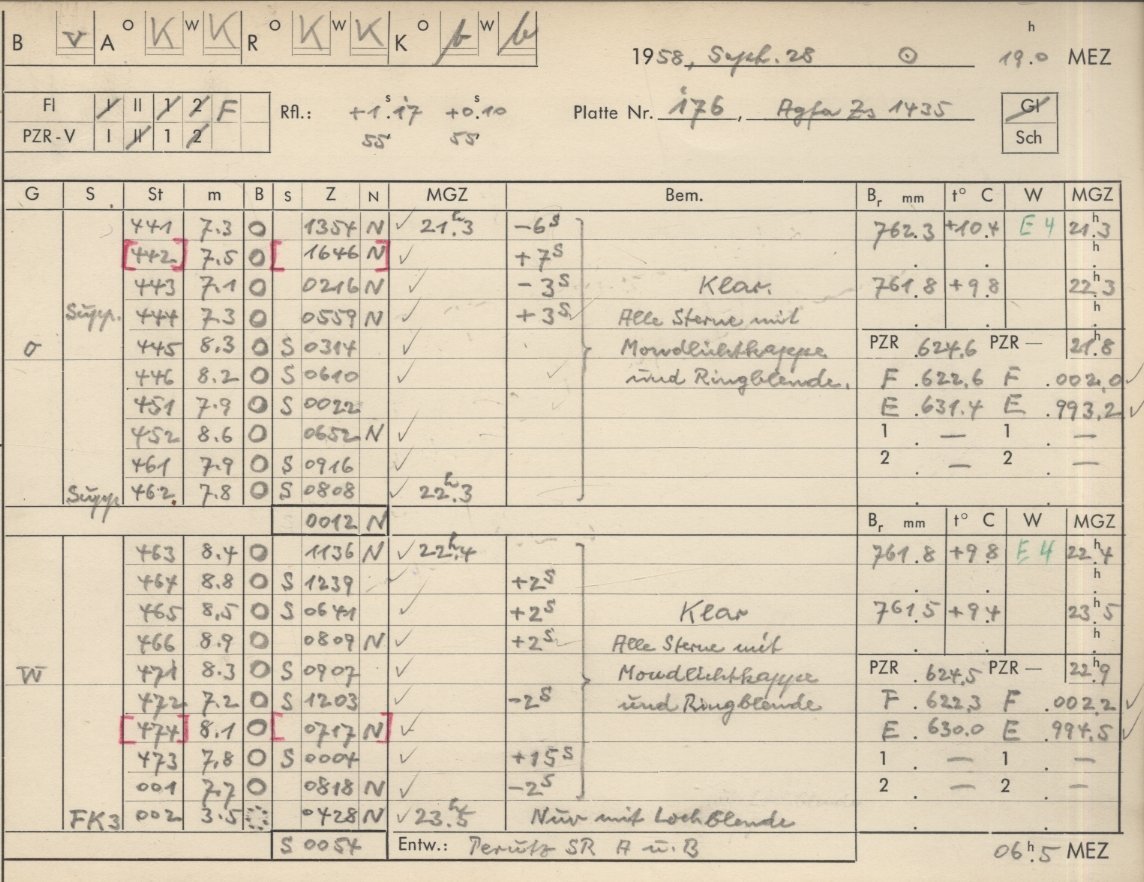 B v A O K W K R O K W K K O b W b 1958, Sept. 28 ⊙ 19.0 h MEZ
Fl I II 1 2 F Rfl.: +1.17 s +0.10 s Platte Nr. 176, Agfa Zs 1435 Gl
PZR-V I II 1 2 55 55 Sch
G S St m B S Z N MGZ Bem. Br mm t° C W MGZ
441 7.3 O 1354 N ✓ 21h.3 -6s 762.3 +10.4 E 4 21h.3
[442] 7.5 O [ 1646 N ] ✓ +7s
443 7.1 O 0216 N ✓ -3s Klar. 761.8 +9.8 22h.3
Supp. 444 7.3 O 0559 N ✓ +3s Alle Sterne mit
σ 445 8.3 O S 0314 ✓ Mondlichtkappe PZR .624.6 PZR — 21h.8
446 8.2 O S 0610 ✓ und Ringblende. F .622.6 F .002.0 ✓
451 7.9 O S 0022 ✓ E .631.4 E .993.2 ✓
452 8.6 O 0652 N ✓ 1 . — 1 . —
461 7.9 O S 0916 ✓ 2 . — 2 . —
Supp. 462 7.8 O S 0808 ✓ 22h.3
0012 N Br mm t° C W MGZ
463 8.4 O 1136 N ✓ 22h.4 761.8 +9.8 E 4 22h.4
464 8.8 O S 1239 ✓ +2s
465 8.5 O S 0641 ✓ +2s Klar 761.5 +9.4 23h.5
466 8.9 O 0809 N ✓ +2s Alle Sterne mit
W 471 8.3 O S 0907 ✓ Mondlichtkappe PZR .624.5 PZR — 22h.9
472 7.2 O S 1203 -2s und Ringblende F .622.3 F .002.2 ✓
[474] 8.1 O [ 0717 N ] ✓ E .630.0 E .994.5 ✓
473 7.8 O S 0004 ✓ +15s 1 . — 1 . —
001 7.7 O 0818 N ✓ -2s 2 . — 2 . —
FK3 002 3.5 0428 N ✓ 23h.5 Nur mit Lochblende
S 0054 Entw.: Perutz SR A u. B 06h.5 MEZ